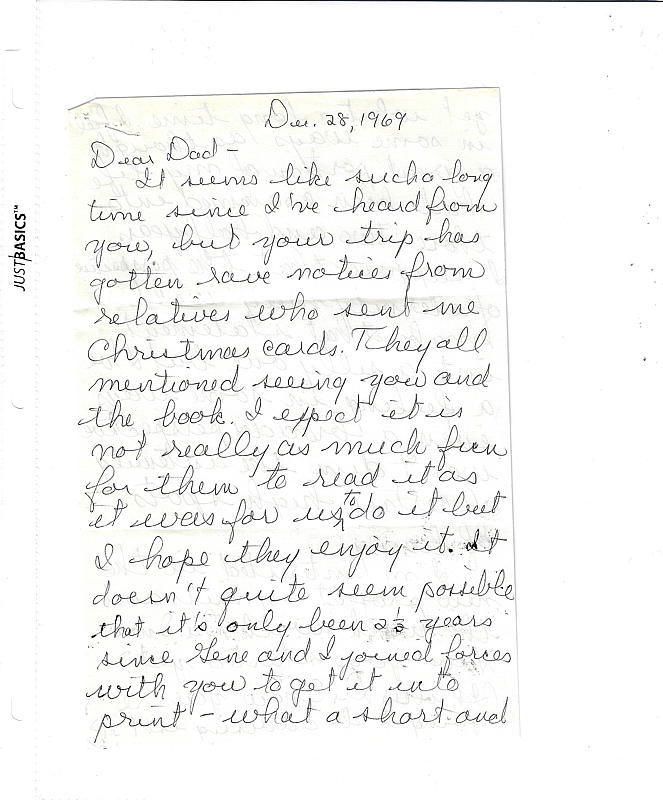 JUSTBASICS™
Dec. 28, 1969
Dear Dad -
It seems like such a long
time since I've heard from
you, but your trip has
gotten rave notices from
relatives who sent me
Christmas cards. They all
mentioned seeing you and
the book. I expect it is
not really as much fun
for them to read it as
it was for us to do it but
I hope they enjoy it. It
doesn't quite seem possible
that it's only been 2½ years
since Gene and I joined forces
with you to get it into
print - what a short and